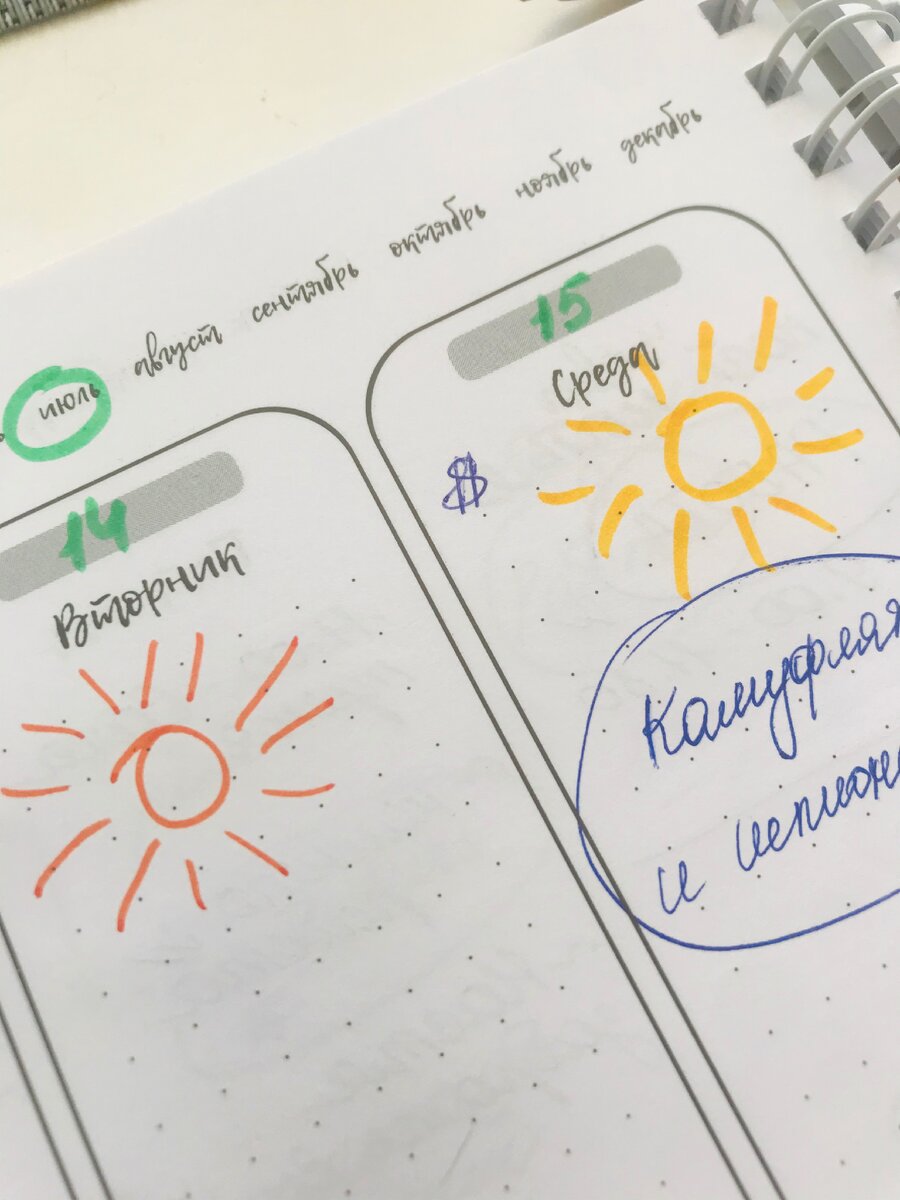 июль август сентябрь октябрь ноябрь декабрь
14
Вторник
15
Среда
$
Камуфляж
и